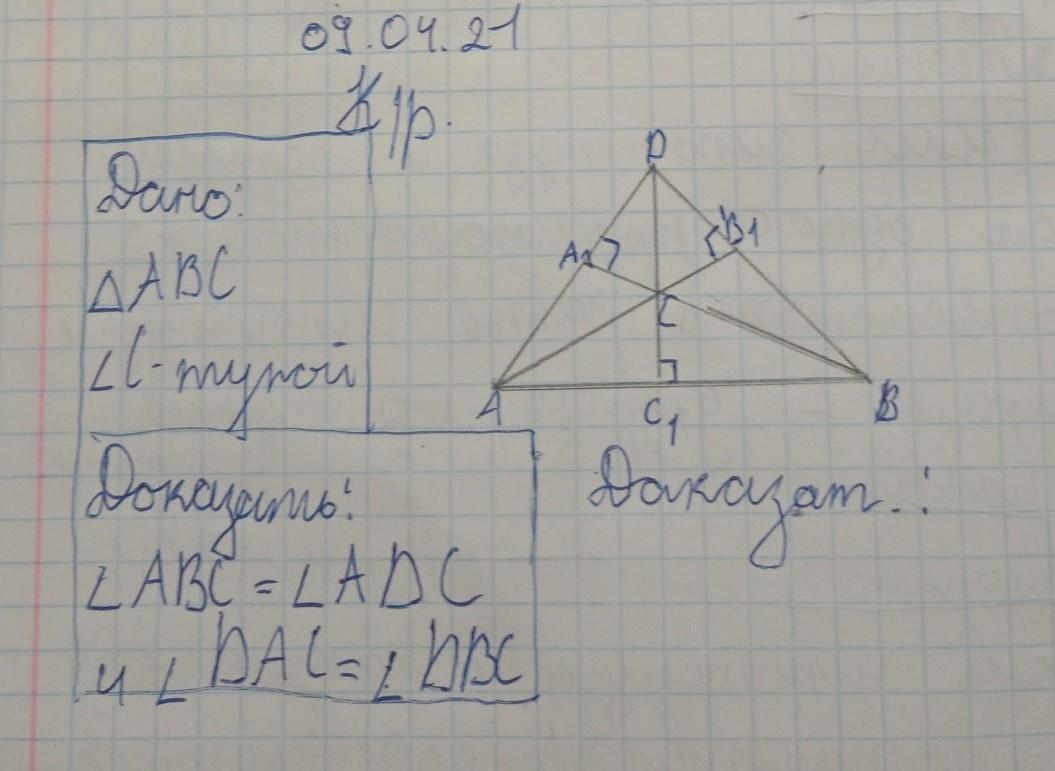 09.04.21
К/р.
Дано:
△ABC
∠C-тупой
Доказать:
∠ABC = ∠ADC
и ∠DAC = ∠DBC
D
A1
B1
C
A
C1
B
Даказат.: